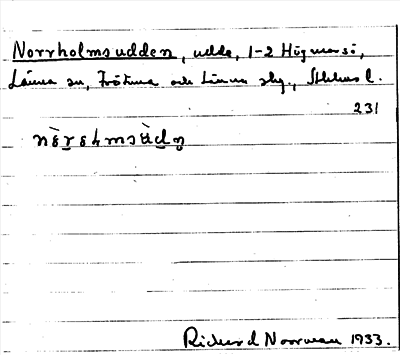 Norrholmsudden, udde, 1-2 Högmarsö,
Länna sn, Frötuna och Länna skg., Sthlms l.
231
Rickard Norrman 1933.